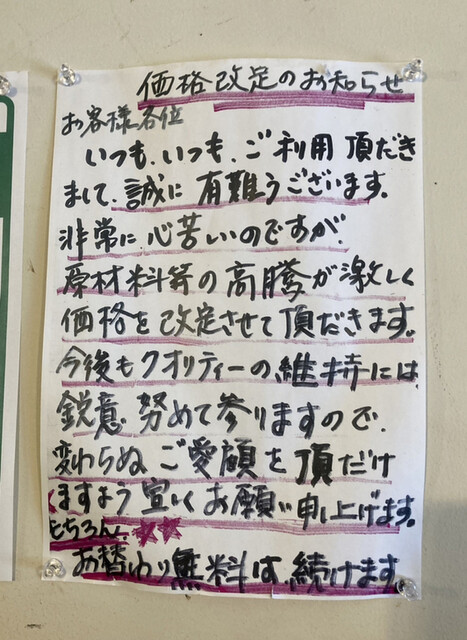 価格改定のお知らせ
お客様各位
いつも、いつも、ご利用頂だき
まして、誠に有難うございます。
非常に心苦いのですが、
原材料等の高騰が激しく
価格を改定させて頂だきます。
今後もクオリティーの、維持には、
鋭意努めて参りますので、
変わらぬご愛顧を頂だけ
くますよう宜しくお願い申し上げます。
もちろん、★★
お替わり無料は、続けます。